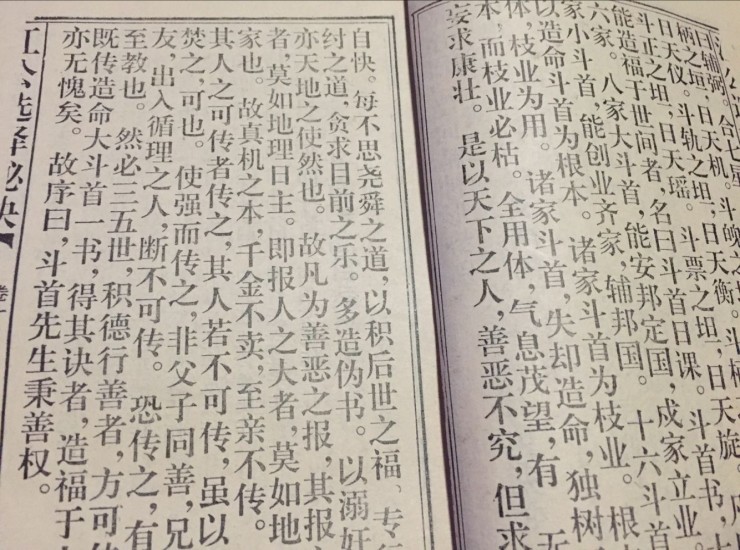 曰辅弼。合七星
柄之垣，曰天机。斗魄之垣
曰天仪。斗轨之垣，曰天衡。斗柄
斗正之垣，曰天瑶。斗票之垣，曰天旋。凡
能造福于世问者，名曰斗首日课。斗首书，七
六家。八家大斗首，能安邦定国，成家立业
家小斗首，能创业齐家，辅邦国。十六斗首
以造命斗首为根本。诸家斗首为枝业。根
体，枝业为用。诸家斗首，失却造命，独树无
本，而枝业必枯。全用体，气息茂望，有
妄求康壮。是以天下之人，善恶不究，但求
自快。每不思尧舜之道，以积后世之福、专行
纣之道，贪求目前之乐。多造伪书。以溺奸
亦天地之使然也。故凡为善恶之报，其报
者，莫如地理日主。即报人之大者，莫如地
家也。故真机之本，千金不卖，至亲不传。
其人之可传者传之，其人若不可传，虽以
焚之，可也。使强而传之，非父子同善，兄
友，出入循理之人，断不可传。恐传之，有
至教也。然必三五世，积德行善者，方可传
既传造命大斗首一书，得其诀者，造福于
亦无愧矣。故序曰，斗首先生秉善权。
江公选择秘诀【卷一